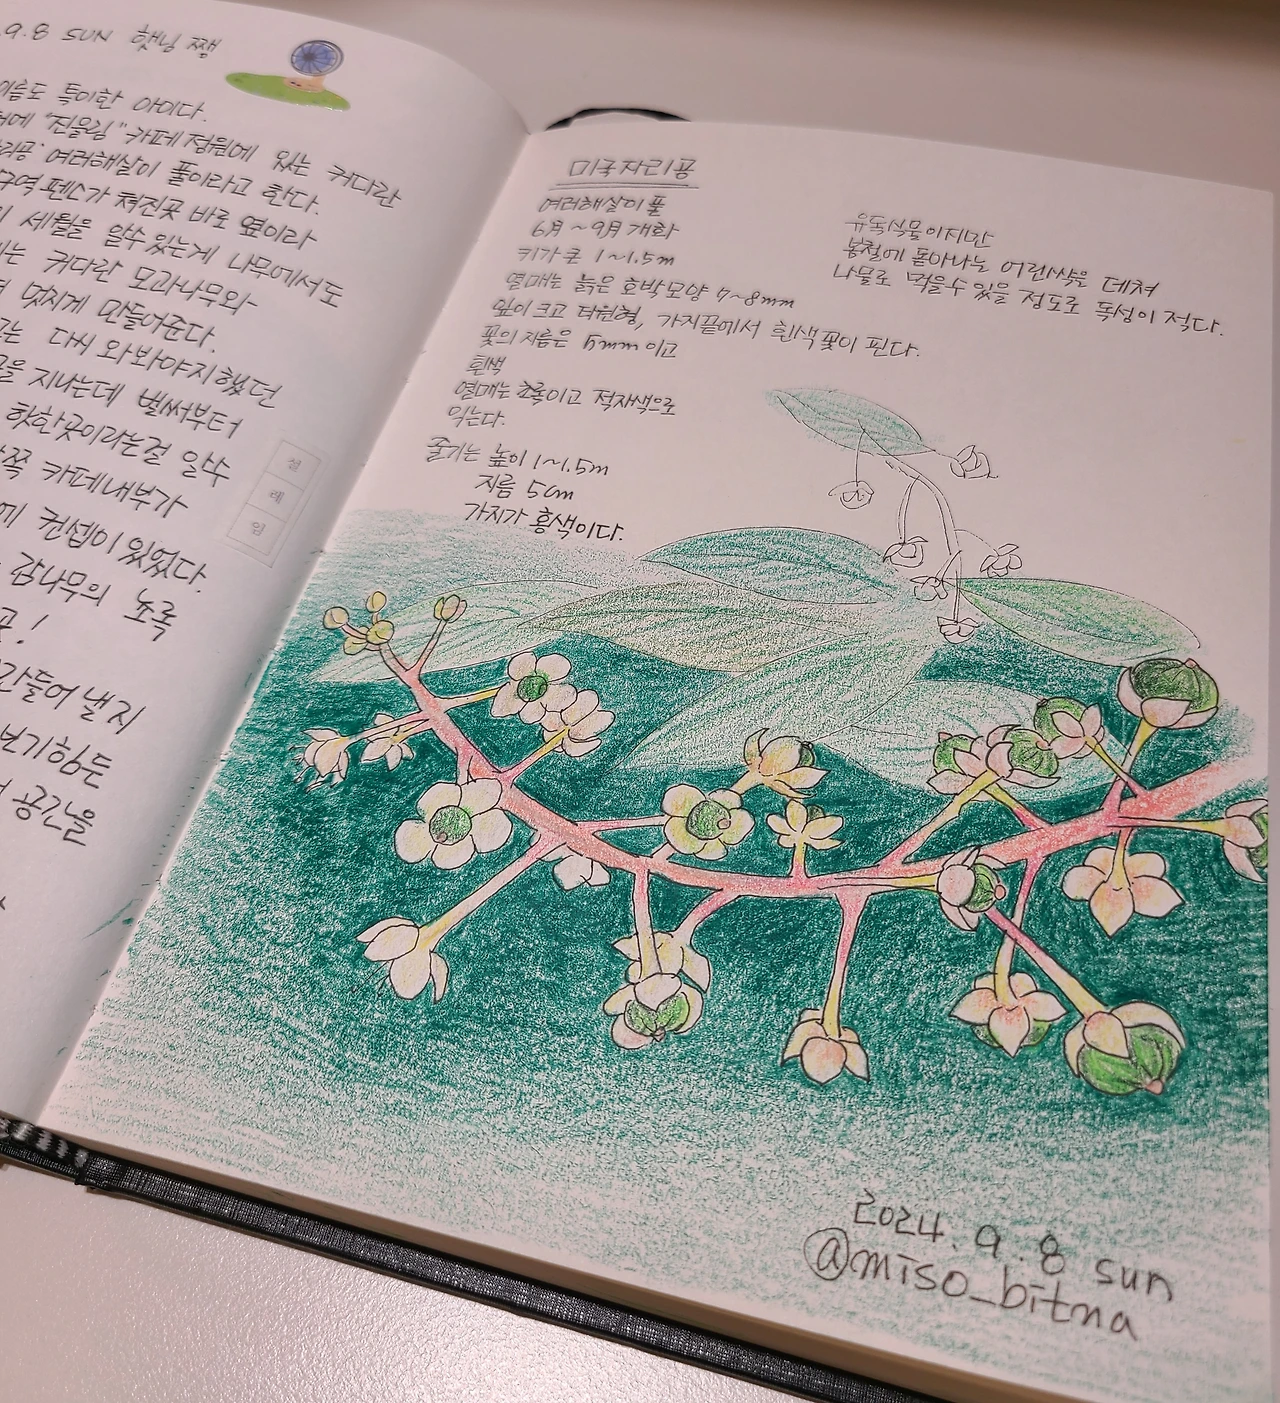 .9.8 SUN 햇님 쨍
이름도 특이한 아이다.
"진울림" 카페 정원에 있는 커다란
여러해살이 풀이라고 한다.
구역 펜스가 쳐진곳 바로 옆이라
세월을 알수 있는게 나무에서도
커다란 모과나무와
멋지게 만들어준다.
다시 와봐야지 했던
지나는데 벌써부터
핫한곳이라는걸 알수
쪽 카페내부가
컨셉이 있었다.
감나무의 초록
!
만들어 낼지
보기힘든
공간을
설
레
임
미국자리공
여러해살이 풀
6月 ~ 9月 개화
키가 큰 1~1.5m
열매는 늙은 호박모양 7~8mm
잎이 크고 타원형, 가지끝에서 흰색 꽃이 핀다.
꽃의 지름은 5mm 이고
흰색
열매는 초록이고 적자색으로
익는다.
줄기는 높이 1~1.5m
지름 5cm
가지가 홍색이다.
유독식물이지만
봄철에 돋아나는 어린싹을 데쳐
나물로 먹을수 있을 정도로 독성이 적다.
2024. 9. 8 sun
@miso_bitna